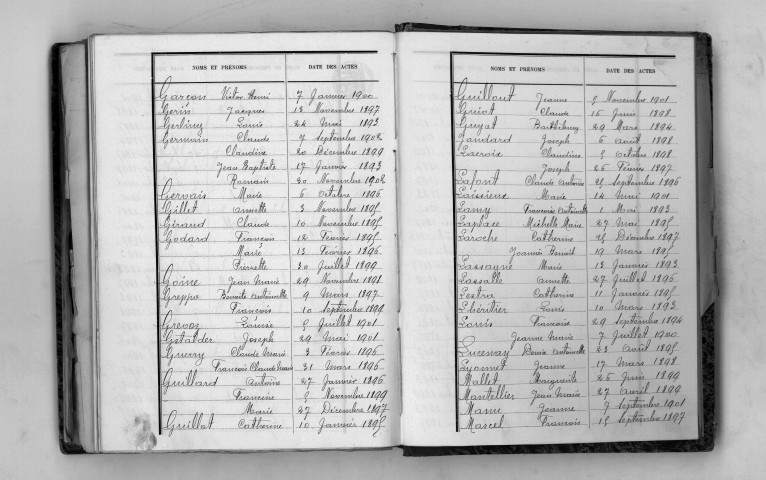 NOMS ET PRÉNOMS DATE DES ACTES
Garçon Victor Henri 7 Janvier 1900
Gerin Jacques 13 Novembre 1897
Gerbiny Louis 22 Mai 1893
Germain Claude 7 Septembre 1902
Claudine 20 Décembre 1899
Jean Baptiste 17 Janvier 1893
Romain 30 Novembre 1902
Gervais Marie 6 Octobre 1896
Gillet Annette 3 Novembre 1895
Giraud Claude 10 Novembre 1895
Godard François 12 Février 1895
Marie 13 Février 1896
Pierrette 30 Juillet 1899
Goine Jean Marie 29 Novembre 1898
Greppo Benoite Antoinette 9 Mars 1897
François 10 Septembre 1899
Grevoz Louise 5 Juillet 1901
Gstalder Joseph 29 Mai 1901
Guerry Claude Marie 3 Février 1896
François Claude Marie 31 Mars 1896
Guillard Antoine 27 Janvier 1896
Francine 5 Novembre 1899
Marie 27 Décembre 1897
Guillot Catherine 10 Janvier 1895
NOMS ET PRÉNOMS DATE DES ACTES
Guillout Jeanne 5 Novembre 1901
Guiot Claude 15 Juin 1898
Guyot Barthélemy 29 Mars 1894
Jandard Joseph 6 Août 1898
Lacroix Claudine 5 Octobre 1898
Joseph 25 Février 1897
Lafont Claude Antoine 25 Septembre 1896
Laisieux Marie 14 Mai 1901
Lamy Francois Antoinette 1 Mai 1893
Laplace Michelle Marie 27 Mai 1895
Laroche Catherine 15 Décembre 1897
Joannès Benoit 19 Mars 1895
Lassagne Marie 13 Janvier 1893
Lassalle Annette 27 Juillet 1896
Lestra Catherine 11 Janvier 1895
Lhéritier Louis 10 Mars 1893
Louis Francoise 29 Septembre 1894
Jeanne Marie 7 Juillet 1900
Lucenay Benoit Antoinette 23 Août 1895
Lyonnet Jeanne 17 Mars 1898
Mallet Marguerite 25 Juin 1899
Mantellier Jean Marie 27 Avril 1899
Manu Jeanne 9 Septembre 1901
Marcel François 15 Septembre 1897